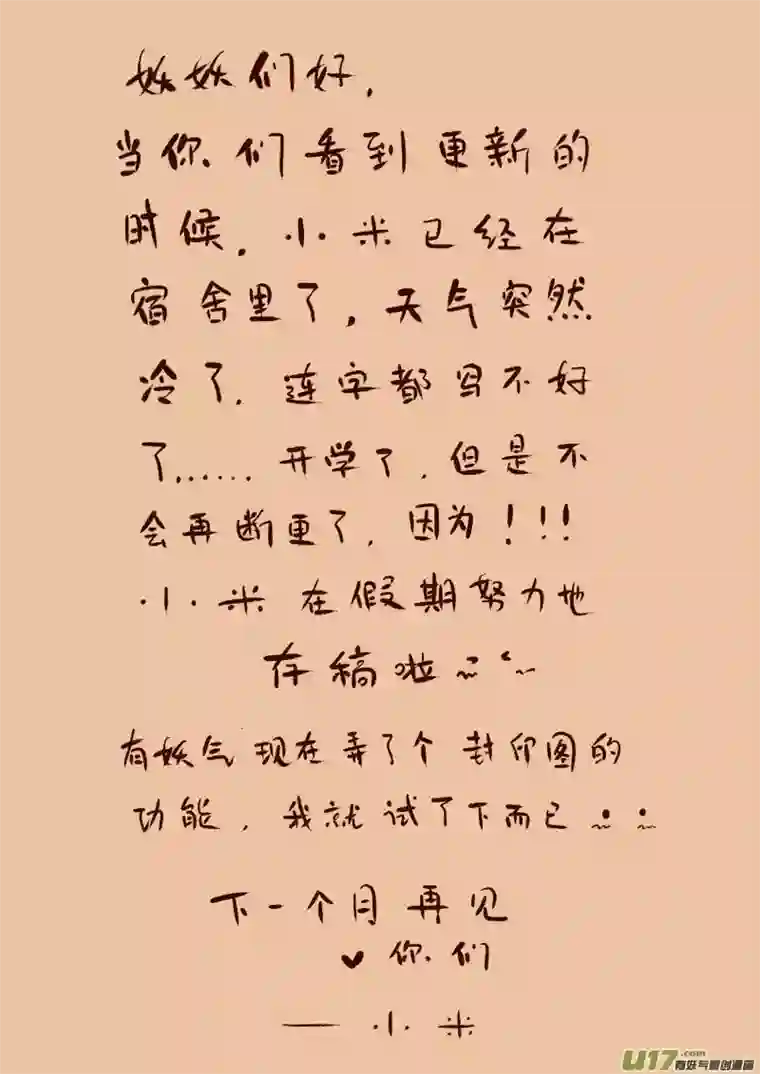 妖妖们好，
当你们看到更新的
时候，小米已经在
宿舍里了，天气突然
冷了，连字都写不好
了……开学了，但是不
会再断更了，因为！！！
小米在假期努力地
存稿啦~~
有妖气现在弄了个封印图的
功能，我就试了下而已~~
下一个月再见
♥你们
——小米
U17.com
有妖气原创漫画